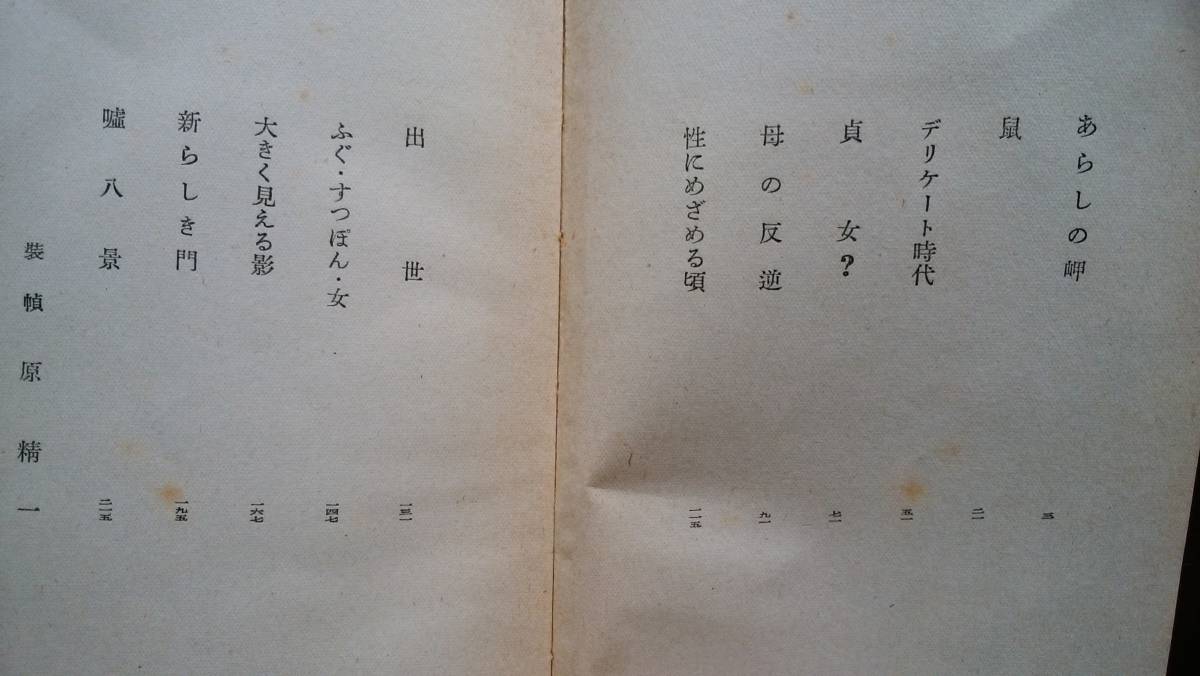 あらしの岬 三
鼠 二一
デリケート時代 五一
貞女? 七一
母の反逆 九一
性にめざめる頃 一一五
出世 一三一
ふぐ・すつぽん・女 一四七
大きく見える影 一六七
新らしき門 一九五
嘘八景 二一五
裝幀 原精一